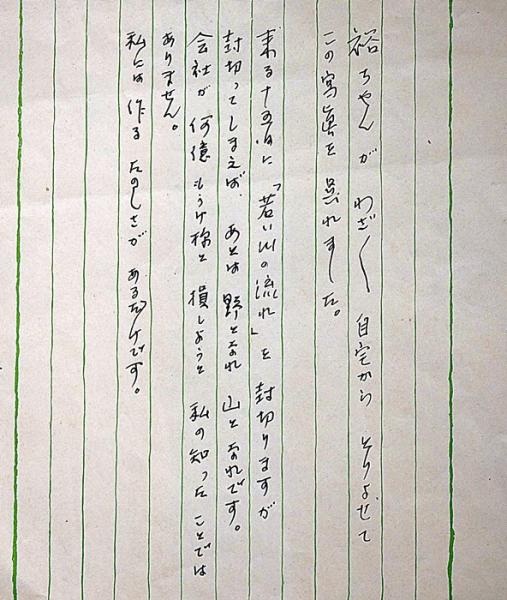 裕ちゃんが わざ〱 自宅から とりよせて
この寫眞を 呉れました。
来る十五日に「若い川の流れ」を 封切りますが
封切ってしまえば、あとは 野となれ 山となれです。
会社が 何億 もうけ様と 損しようと 私の知った ことでは
ありません。
私には 作る たのしさが あるだけです。